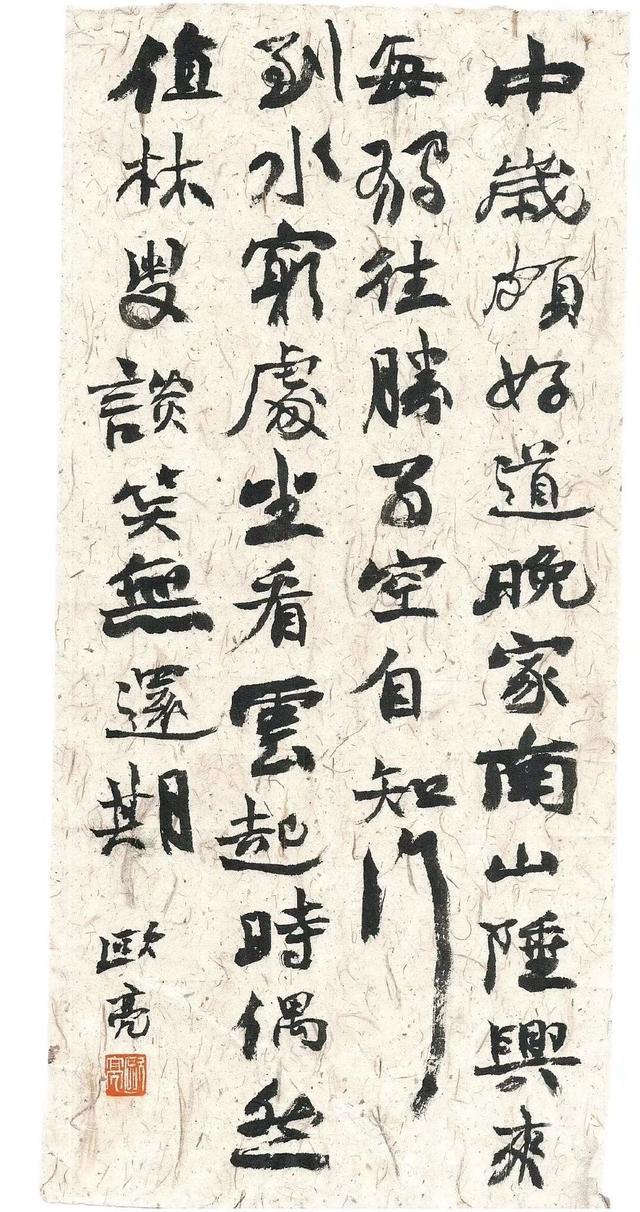 中歲頗好道晚家南山陲興來
每獨往勝事空自知行
到水窮處坐看雲起時偶然
值林叟談笑無還期
歐亮
歐亮